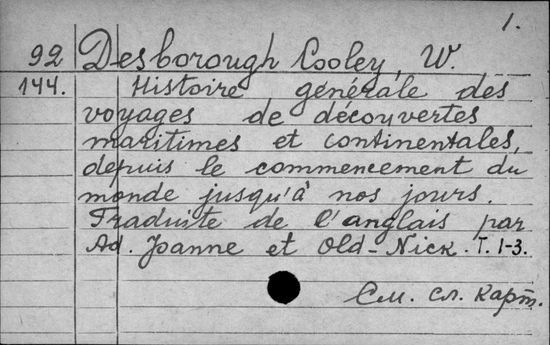 1.
92 Desborough Cooley, W.
144. Histoire générale des
voyages de découvertes
maritimes et continentales,
depuis le commencement du
monde jusqu'à nos jours.
Traduite de l'anglais par
Ad. Joanne et Old-Nick. T. 1-3.
См. сл. карт.